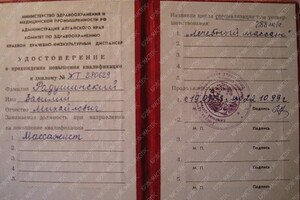 МИНИСТЕРСТВО ЗДРАВООХРАНЕНИЯ И
МЕДИЦИНСКОЙ ПРОМЫШЛЕННОСТИ РФ
АДМИНИСТРАЦИЯ АЛТАЙСКОГО КРАЯ
КОМИТЕТ ПО ЗДРАВООХРАНЕНИЮ
КРАЕВОЙ ВРАЧЕБНО-ФИЗКУЛЬТУРНЫЙ ДИСПАНСЕР
УДОСТОВЕРЕНИЕ
о прохождении повышения квалификации
к диплому № ХТ
Фамилия Радушинский
Имя Василий
Отчество Михайлович
Занимаемая должность при направлении
на повышение квалификации
Массажист
Название цикла специализации
1. "лечебный массаж"
2.
3.
4.
5.
1.
М. П. Подпись
2.
М. П. Подпись
3.
М. П. Подпись
4.
М. П. Подпись
5.
М. П. Подпись